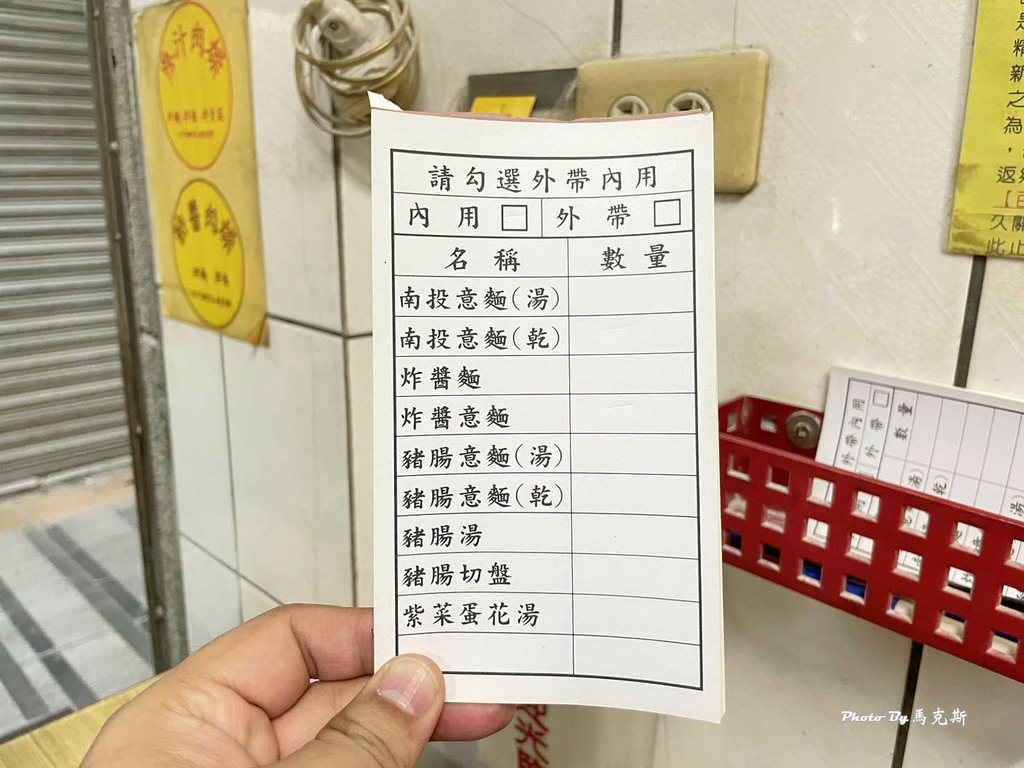 請勾選外帶內用
內用□ 外帶□
名稱 數量
南投意麵(湯)
南投意麵(乾)
炸醬麵
炸醬意麵
豬腸意麵(湯)
豬腸意麵(乾)
豬腸湯
豬腸切盤
紫菜蛋花湯
精
新
之
為
，
返
久關
此止
外帶內用
外帶□
數量
Photo By 馬克斯